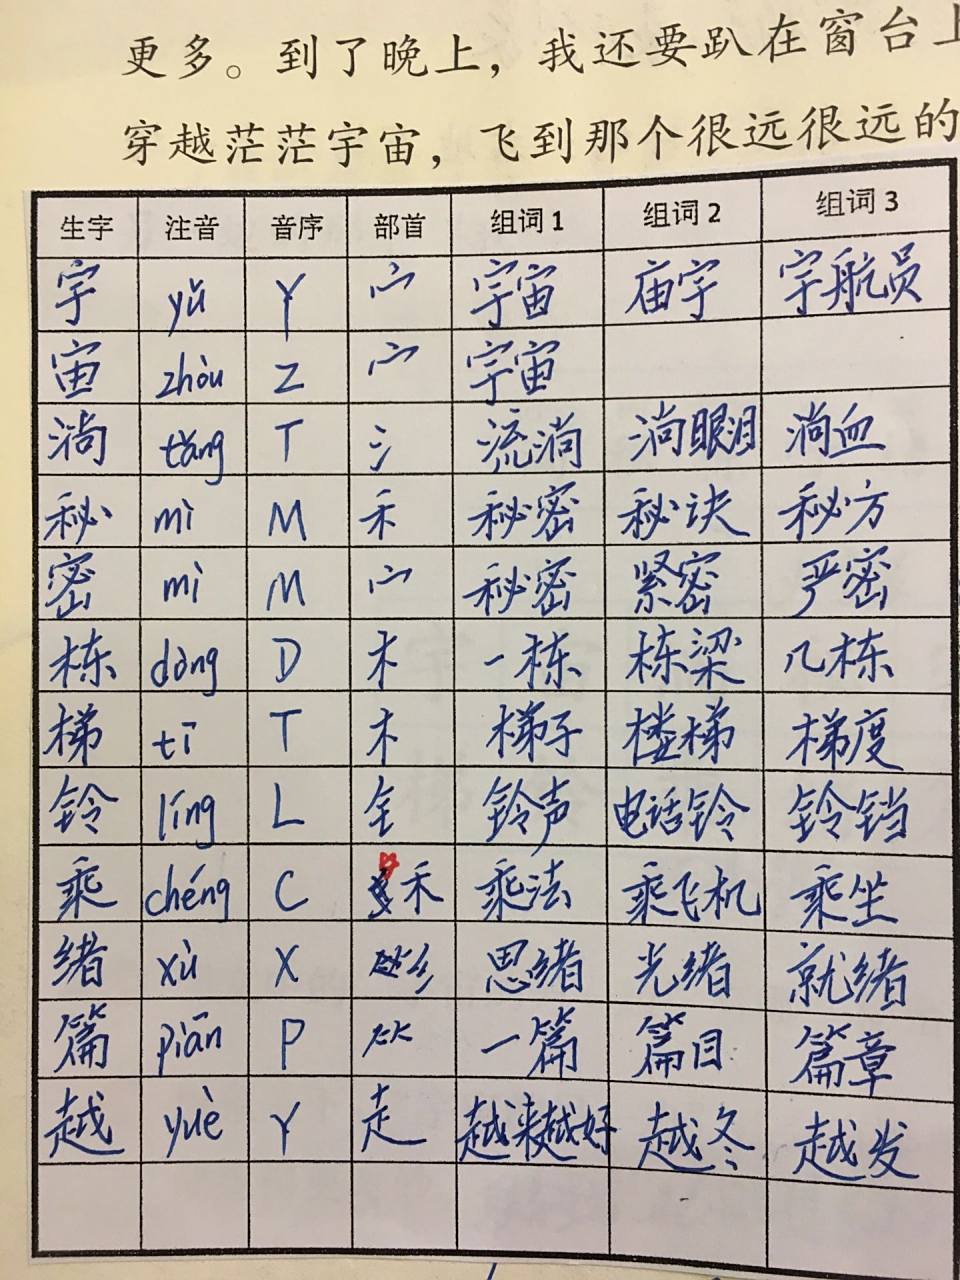 更多。到了晚上，我还要趴在窗台上
穿越茫茫宇宙，飞到那个很远很远的
生字 注音 音序 部首 组词1 组词2 组词3
宇 yǔ Y 宀 宇宙 庙宇 宇航员
宙 zhòu Z 宀 宇宙
淌 tǎng T 氵 流淌 淌眼泪 淌血
秘 mì M 禾 秘密 秘诀 秘方
密 mì M 宀 秘密 紧密 严密
栋 dòng D 木 一栋 栋梁 几栋
梯 tī T 木 梯子 楼梯 梯度
铃 líng L 钅 铃声 电话铃 铃铛
乘 chéng C 禾 乘法 乘飞机 乘坐
绪 xù X 纟 思绪 光绪 就绪
篇 piān P 𥫗 一篇 篇目 篇章
越 yuè Y 走 越来越好 越冬 越发